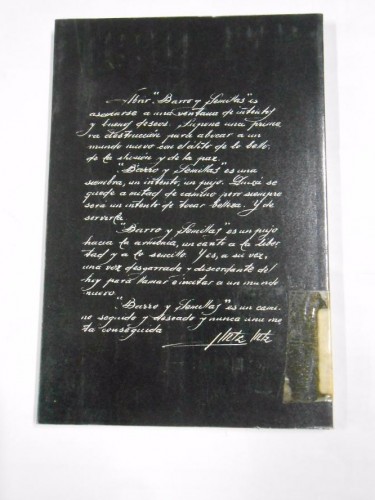 Abrir "Barro y Semillas" es
asomarse a una ventana de intentos
y buenos deseos. Supone una prime
ra destrucción para abocar a un
mundo nuevo con el alito de lo bello,
de la ilusión y de la paz.
"Barro y Semillas" es una
siembra, un intento, un pujo. Quizá se
quede a mitad de camino, pero siempre
será un intento de tocar belleza. Y de
servirla.
"Barro y Semillas" es un pujo
hacia la armonía, un canto a la liber
tad y a lo sencillo. Y es, a su vez,
una voz desgarrada y descordante del
hoy para llamar e incitar a un mundo
nuevo.
"Barro y Semillas" es un cami
no seguido y deseado y nunca una me
ta conseguida